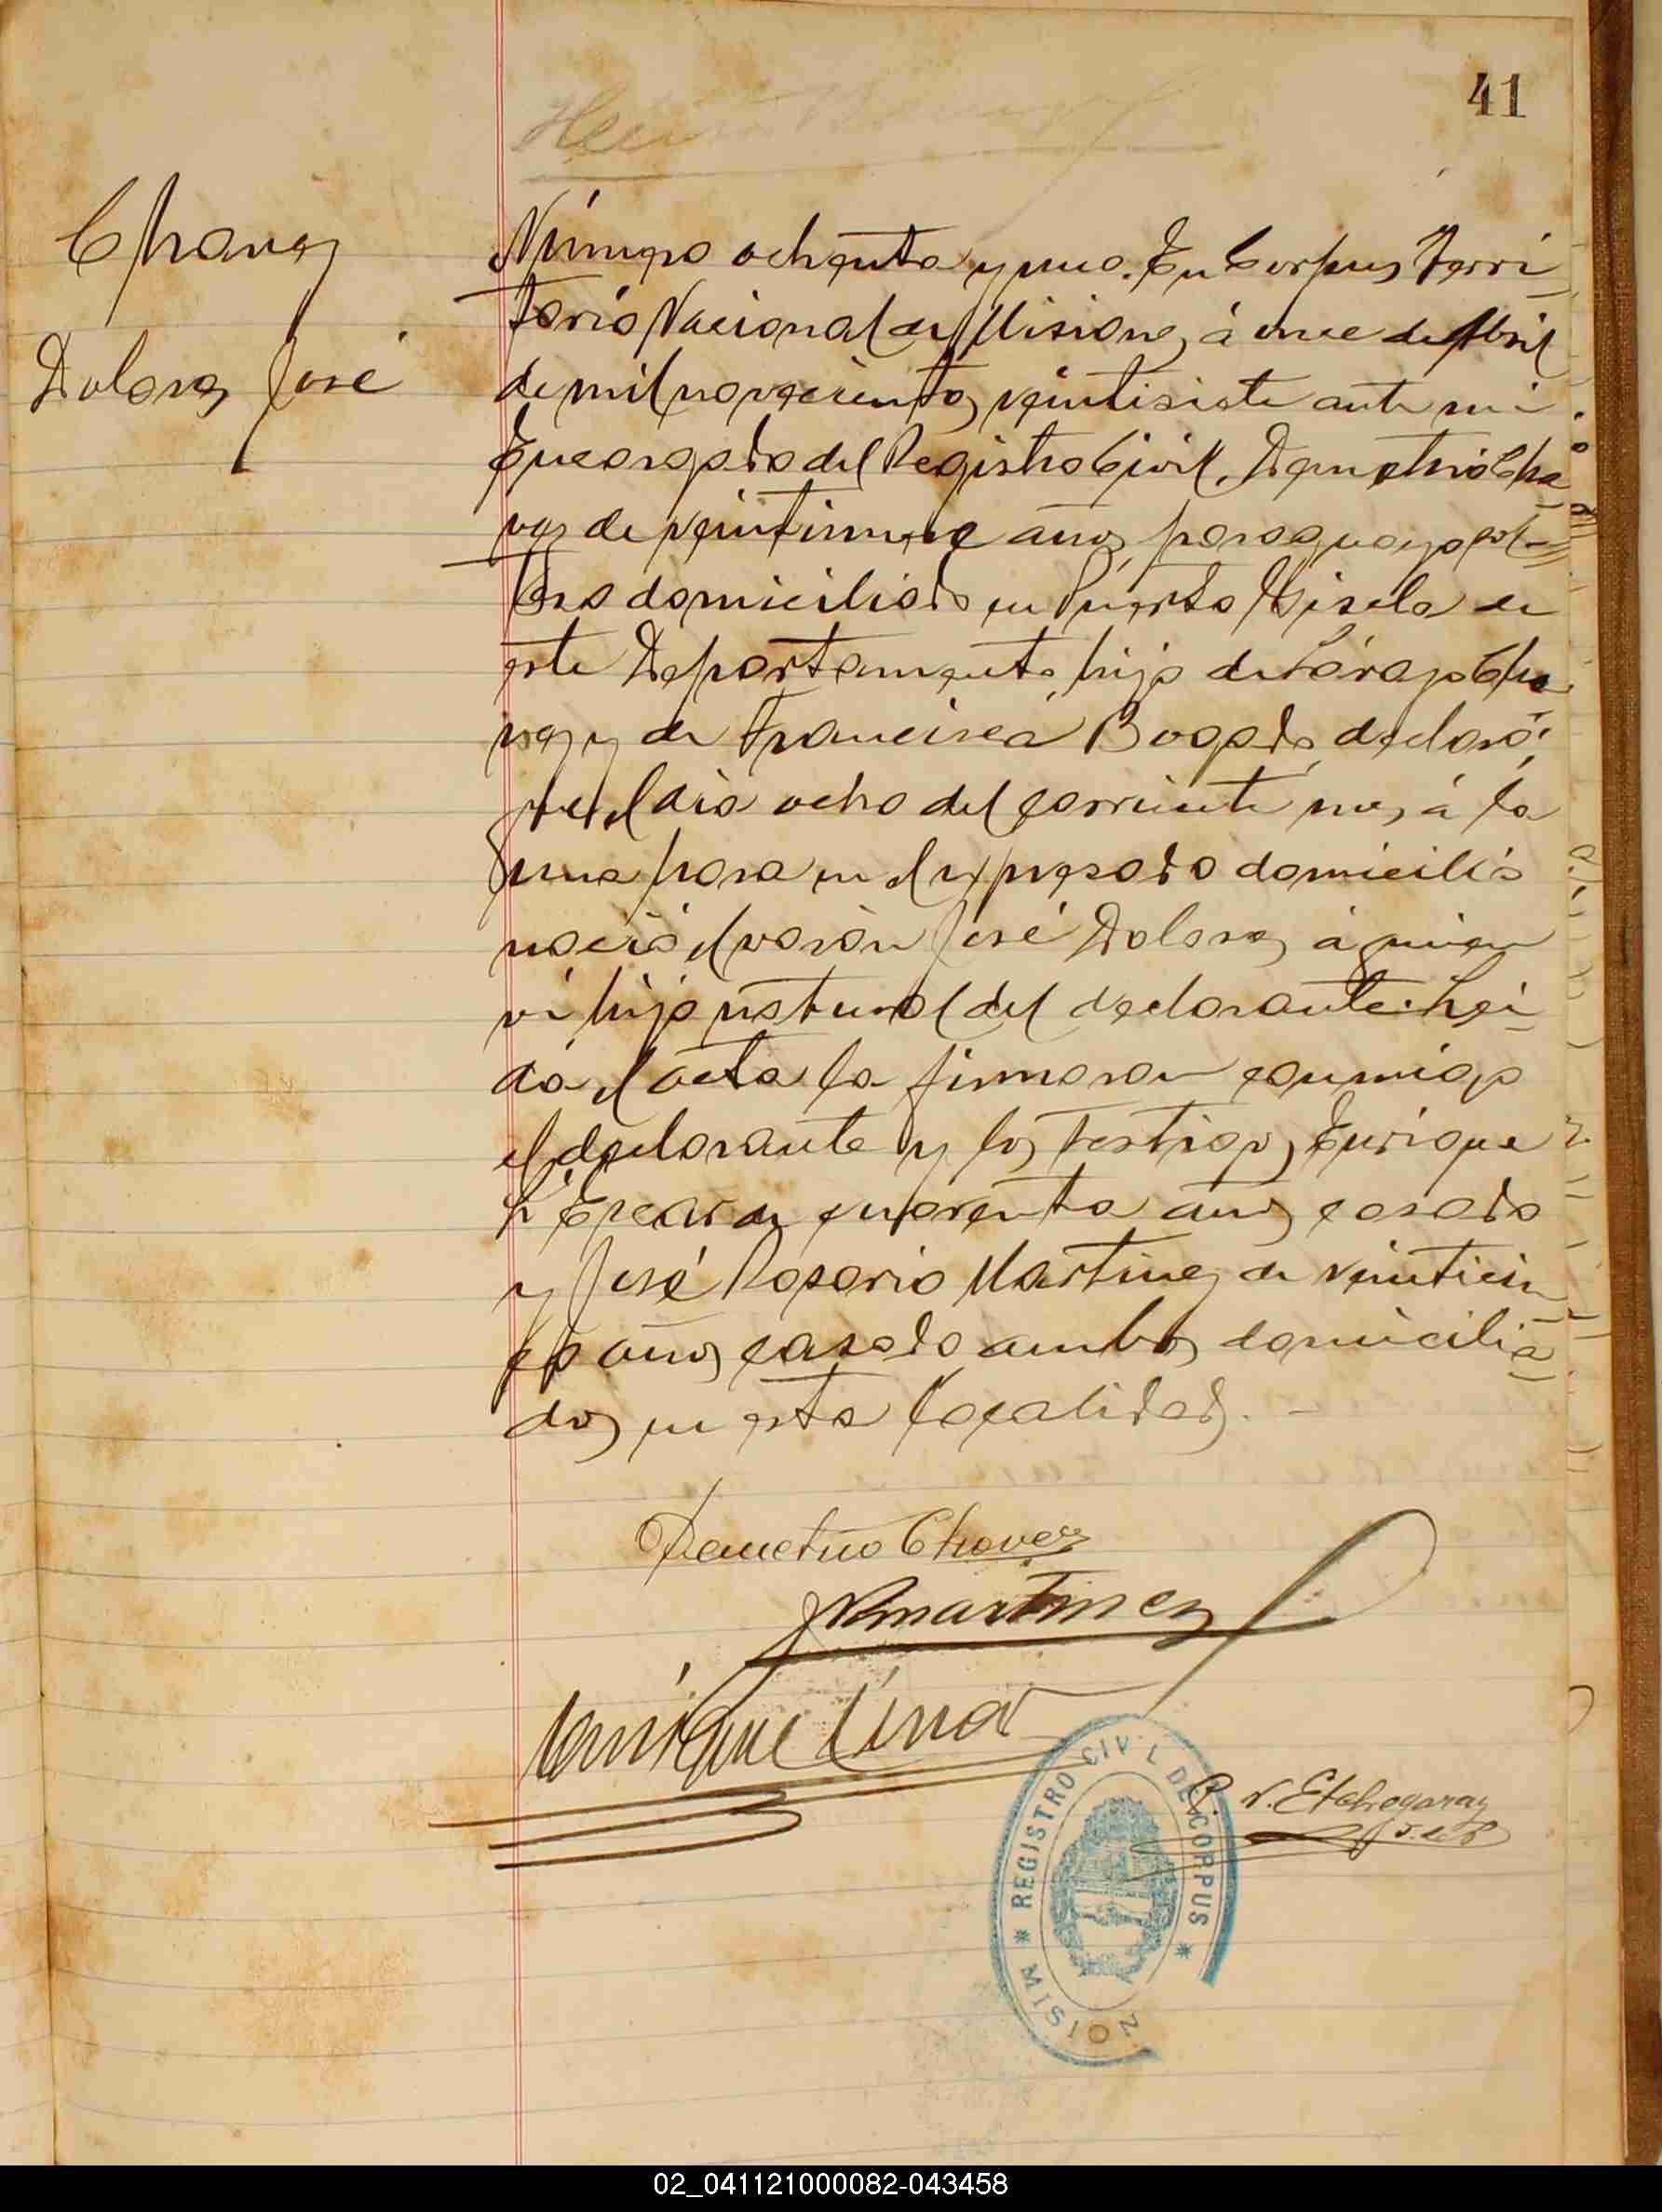 41
Chavez
Dolores José
Número ochenta y uno. En Corpus Terri-
torio Nacional de Misiones á once de Abril
de mil novecientos veintisiete ante mi
Encargado del Registro Civil, Demetrio Cha-
vez de veintinueve años, paraguayo, sol-
tero domiciliado en Puerto Gisela de
este Departamento, hijo de Lázaro Cha-
vez y de Francisca Bogado, declaró:
que el dia ocho del corriente mes á la
una hora en el expresado domicilio
nació el varón José Dolores á quien
vi hijo natural del declarante. Lei-
da el acta la firmaron conmigo
el declarante y los testigos Enrique
de cuarenta años casado
y José Rosario Martinez de veinticin-
co años casado ambos domicilia-
dos en esta localidad. -
Demetrio Chavez
JRMartinez
Enrique
N. Etchegaray
REGISTRO CIVIL DE CORPUS
MISION
02_041121000082-043458